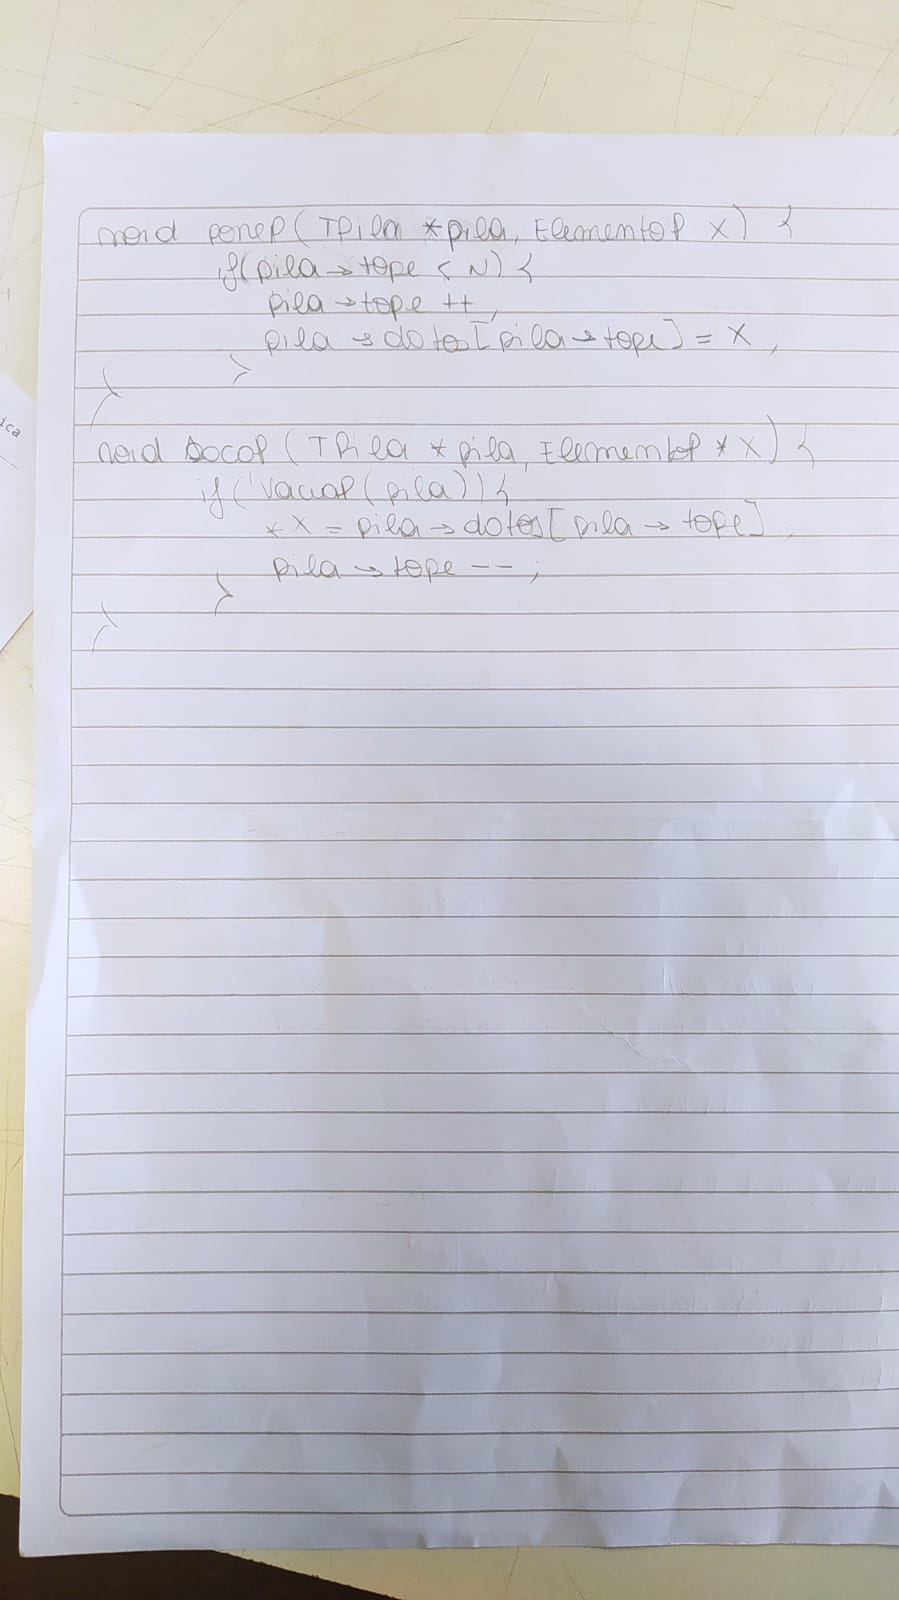 void ponep (TPila *pila, Elementop X) {
if(pila → tope < N) {
pila → tope ++;
pila → datos [pila → tope] = X;
}
}
void sacap (TPila * pila, Elementop * X) {
if (!vaciap (pila)) {
* X = pila → datos [pila → tope];
pila → tope --;
}
}
ica